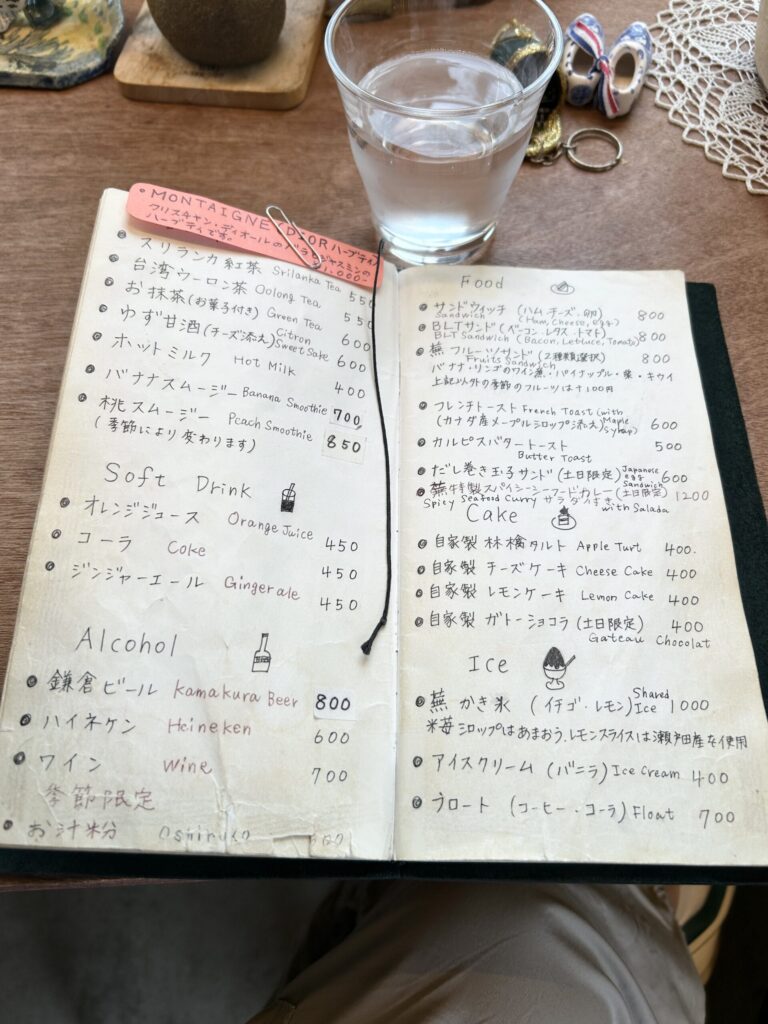 • MONTAIGNE (DIOR ハーブティ)
クリスチャン・ディオールのバラとジャスミンの
ハーブティです。 1,000-
スリランカ紅茶 Srilanka Tea 550
台湾ウーロン茶 Oolong Tea 550
お抹茶(お菓子付き) Green Tea 600
ゆず甘酒(チーズ添え) Citron Sweet Sake 600
ホットミルク Hot Milk 400
バナナスムージー Banana Smoothie 700
桃スムージー Peach Smoothie 850
(季節により変わります)
Soft Drink
オレンジジュース Orange Juice 450
コーラ Coke 450
ジンジャーエール Gingerale 450
Alcohol
鎌倉ビール Kamakura Beer 800
ハイネケン Heineken 600
ワイン Wine 700
季節限定
お汁粉 Oshiruko
Food
サンドウィッチ (ハム チーズ・卵) 800
Sandwich (Ham, Cheese, egg)
BLTサンド (ベーコン・レタス トマト) 800
BLT Sandwich (Bacon, Lettuce, Tomato)
蕪 フルーツサンド (2種類選択) 800
Fruits Sandwich
バナナ・リンゴのワイン煮・パイナップル・栗・キウイ
上記以外の季節のフルーツは+100円
フレンチトースト French Toast (with Maple Syrup)
(カナダ産メープルシロップ添え) 600
カルピスバタートースト 500
Butter Toast
だし巻き玉子サンド (土日限定) Japanese egg Sandwich 600
蕪特製スパイシーシーフードカレー (土日限定) 1200
Spicy Seafood Curry サラダ付き with Salada
Cake
自家製 林檎タルト Apple Turt 400.
自家製 チーズケーキ Cheese Cake 400
自家製 レモンケーキ Lemon Cake 400
自家製 ガトーショコラ (土日限定) 400
Gateau Chocolat
Ice
蕪 かき氷 (イチゴ・レモン) Shared Ice 1000
米苺シロップはあまおう、レモンスライスは瀬戸田産を使用
アイスクリーム (バニラ) Ice Cream 400
フロート (コーヒー・コーラ) Float 700